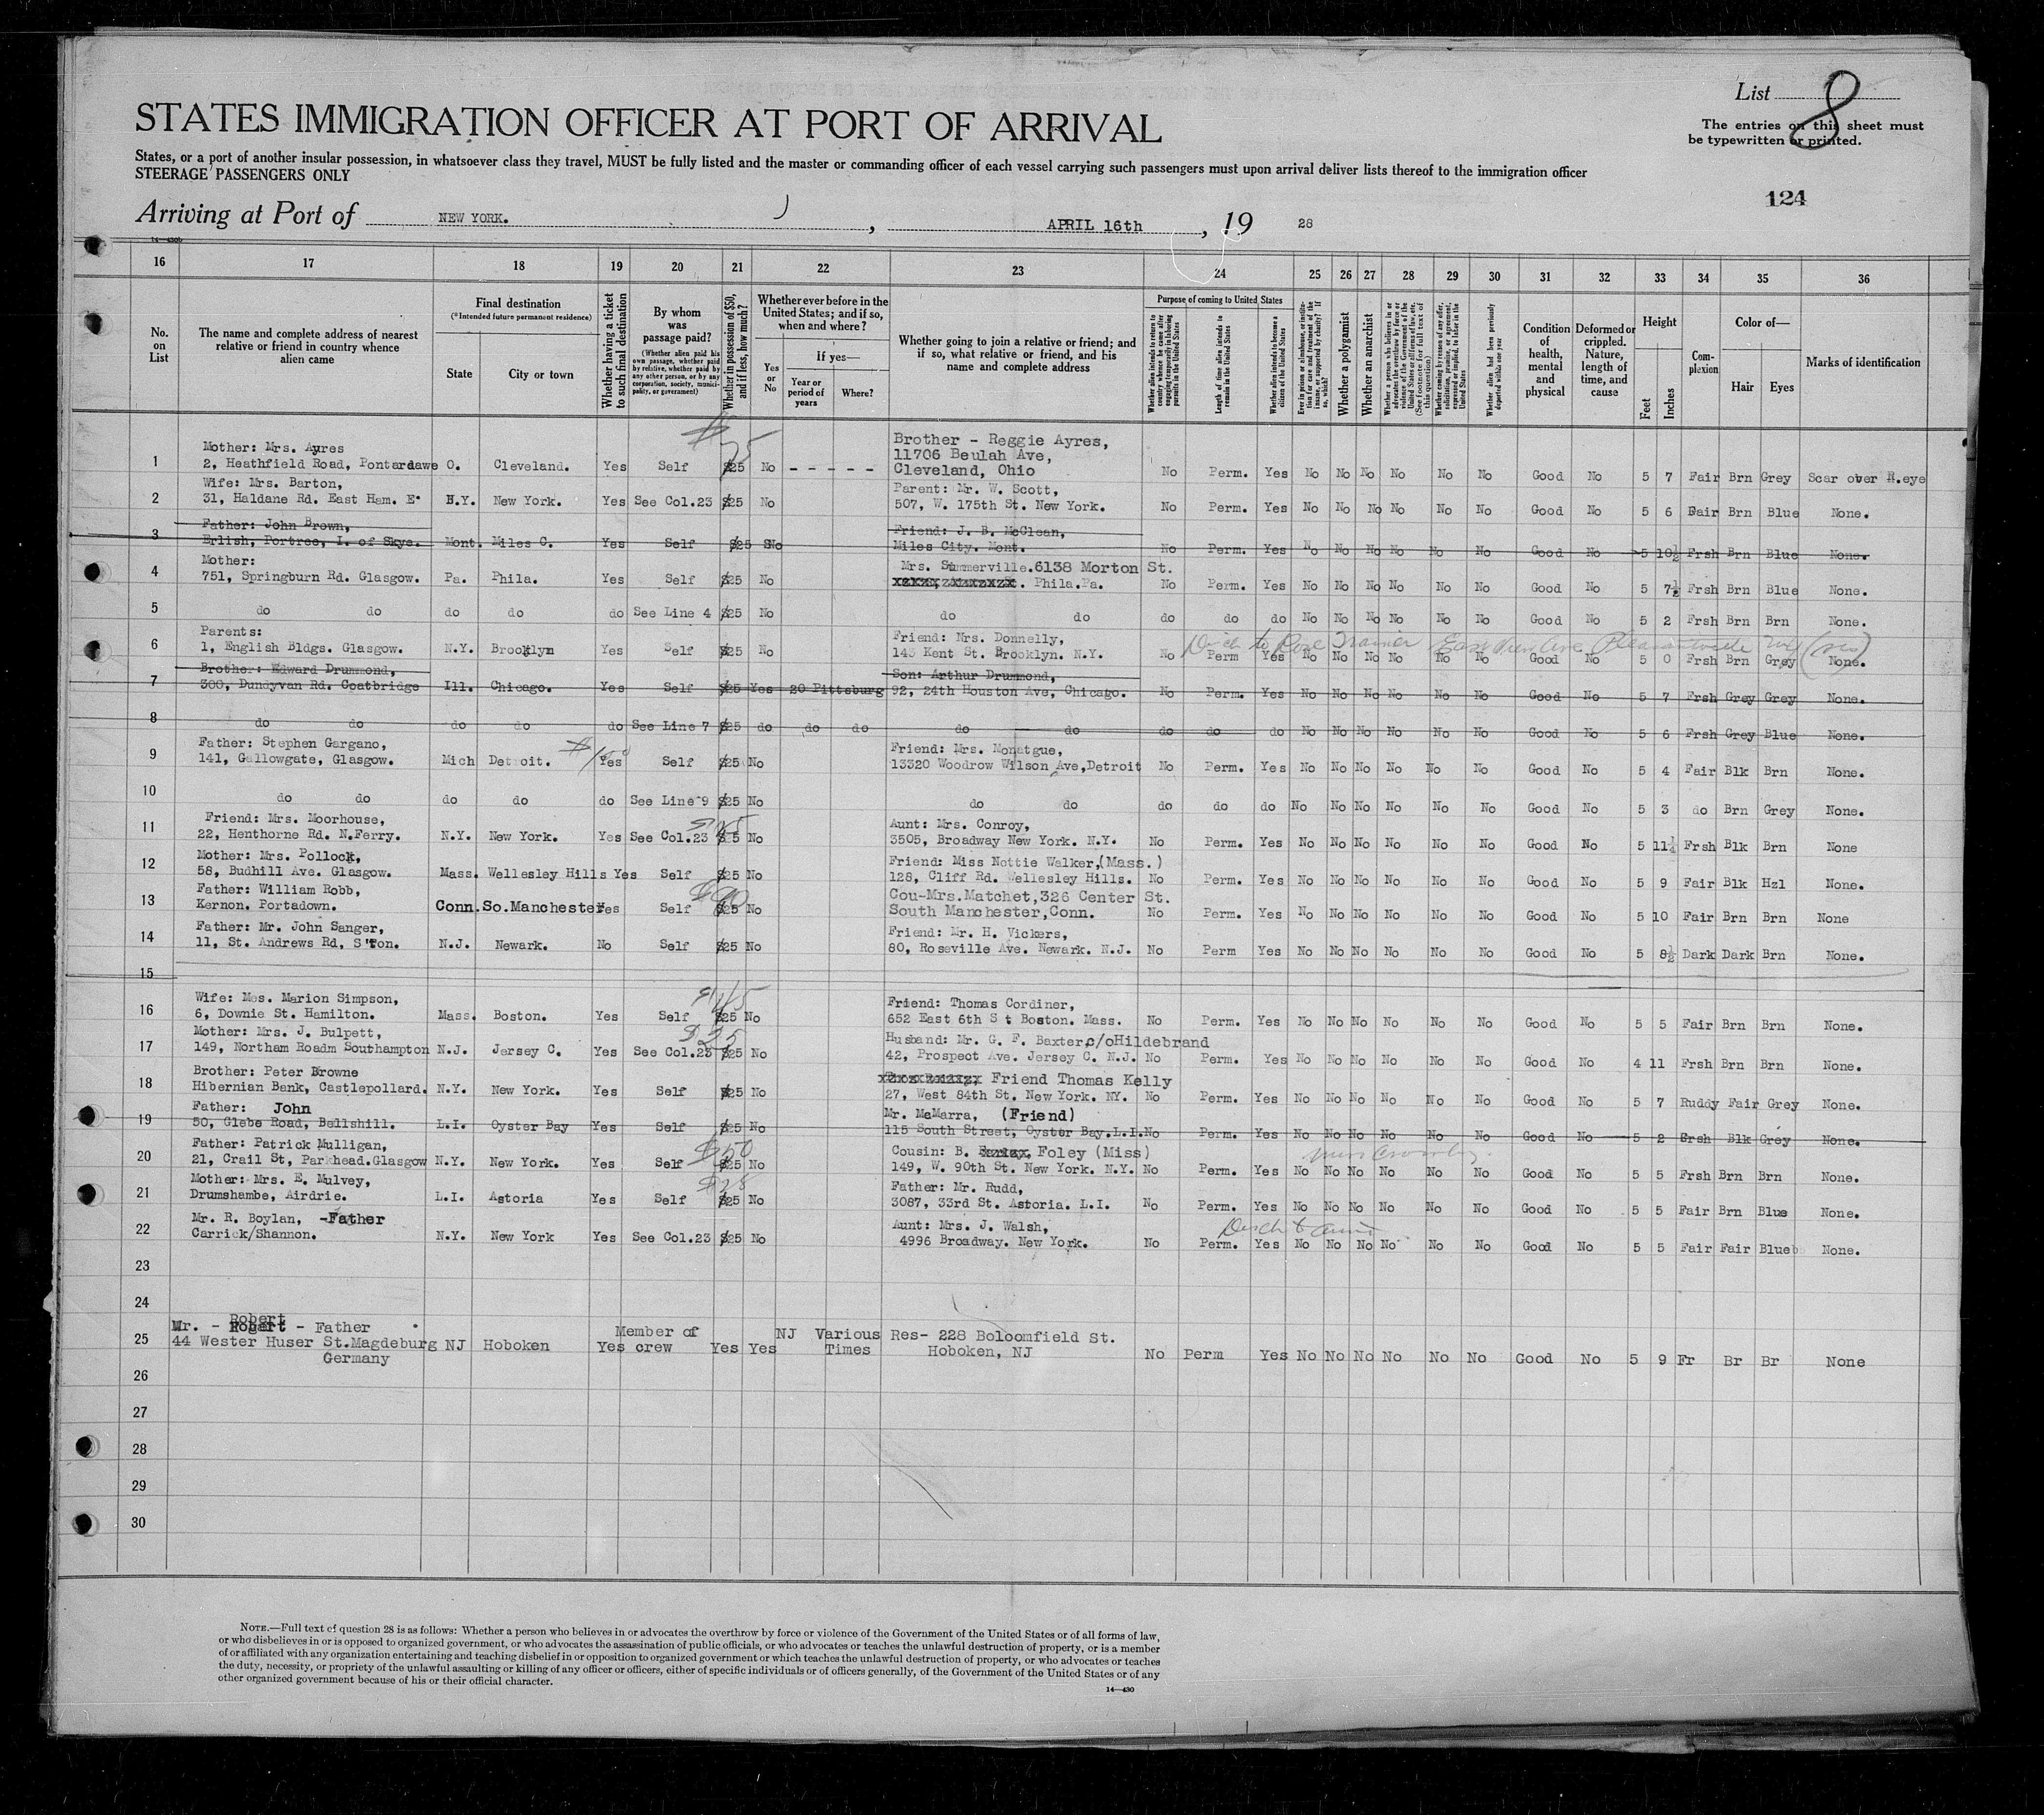 List 8
STATES IMMIGRATION OFFICER AT PORT OF ARRIVAL
The entries on this sheet must
be typewritten or printed.
States, or a port of another insular possession, in whatsoever class they travel, MUST be fully listed and the master or commanding officer of each vessel carrying such passengers must upon arrival deliver lists thereof to the immigration officer
STEERAGE PASSENGERS ONLY
124
Arriving at Port of NEW YORK. , APRIL 16th , 19 28
16 17 18 19 20 21 22 23 24 25 26 27 28 29 30 31 32 33 34 35 36
No. on List
The name and complete address of nearest relative or friend in country whence alien came
Final destination
(*Intended future permanent residence)
State
City or town
Whether having a ticket to such final destination
By whom was passage paid?
(Whether alien paid his own passage, whether paid by relative, whether paid by any other person, or by any corporation, society, municipality, or government)
Whether in possession of $50, and if less, how much?
Whether ever before in the United States; and if so, when and where?
Yes or No
If yes—
Year or period of years
Where?
Whether going to join a relative or friend; and if so, what relative or friend, and his name and complete address
Purpose of coming to United States
Whether alien intends to return to country whence he came after engaging temporarily in laboring pursuits in the United States
Length of time alien intends to remain in the United States
Whether alien intends to become a citizen of the United States
Ever in prison or almshouse, or institution for care and treatment of the insane, or supported by charity? If so, which?
Whether a polygamist
Whether an anarchist
Whether a person who believes in or advocates the overthrow by force or violence of the Government of the United States or all forms of law, etc. (See footnote for full text of this question)
Whether coming by reason of any offer, solicitation, promise, or agreement, expressed or implied, to labor in the United States
Whether alien had been previously deported within one year
Condition of health, mental and physical
Deformed or crippled. Nature, length of time, and cause
Height
Feet
Inches
Complexion
Color of—
Hair
Eyes
Marks of identification
Mother: Mrs. Ayres Brother - Reggie Ayres,
11706 Beulah Ave,
1 2, Heathfield Road, Pontardawe O. Cleveland. Yes Self $25 $75 No - - - - - Cleveland, Ohio No Perm. Yes No No No No No No Good No 5 7 Fair Brn Grey Scar over R.eye
Wife: Mrs. Barton, Parent: Mr. W. Scott,
2 31, Haldane Rd. East Ham. E. N.Y. New York. Yes See Col.23 $25 No 507, W. 175th St. New York. No Perm. Yes No No No No No No Good No 5 6 Fair Brn Blue None.
Father: John Brown, Friend: J. B. McClean,
3 Erlish, Portree, I. of Skye. Mont. Miles C. Yes Self $25 No Miles City. Mont. No Perm. Yes No No No No No No Good No 5 10½ Frsh Brn Blue None.
Mother: Mrs. Summerville. 6138 Morton St.
4 751, Springburn Rd. Glasgow. Pa. Phila. Yes Self $25 No Phila.Pa. No Perm. Yes No No No No No No Good No 5 7½ Frsh Brn Blue None.
5 do do do do do See Line 4 $25 No do do do do do No No No No No No Good No 5 2 Frsh Brn Brn None.
Parents: Friend: Mrs. Donnelly, Disch to
6 1, English Bldgs. Glasgow. N.Y. Brooklyn Yes Self $25 No 143 Kent St. Brooklyn. N.Y. No Perm Yes No No No No No No Good No 5 0 Frsh Brn Grey None.
Brother: Edward Drummond, Son: Arthur Drummond,
7 300, Dundyvan Rd. Coatbridge Ill. Chicago. Yes Self $25 Yes 20 Pittsburg 92, 24th Houston Ave, Chicago. No Perm. Yes No No No No No No Good No 5 7 Frsh Grey Grey None.
8 do do do do do See Line 7 $25 do do do do do do do do No No No No No No Good No 5 6 Frsh Grey Blue None.
Father: Stephen Gargano, Friend: Mrs. Monatgue,
9 141, Gallowgate, Glasgow. Mich Detroit. $150 Yes Self $25 No 13320 Woodrow Wilson Ave,Detroit No Perm. Yes No No No No No No Good No 5 4 Fair Blk Brn None.
10 do do do do do See Line 9 $25 No do do do do do No No No No No No Good No 5 3 do Brn Grey None.
Friend: Mrs. Moorhouse, Aunt: Mrs. Conroy,
11 22, Henthorne Rd. N.Ferry. N.Y. New York. Yes See Col.23 $25 No 3505, Broadway New York. N.Y. No Perm. Yes No No No No No No Good No 5 11¼ Frsh Blk Brn None
Mother: Mrs. Pollock, Friend: Miss Nettie Walker,(Mass.)
12 58, Budhill Ave. Glasgow. Mass. Wellesley Hills Yes Self $25 No 128, Cliff Rd. Wellesley Hills. No Perm. Yes No No No No No No Good No 5 9 Fair Blk Hzl None.
Father: William Robb, Cou-Mrs.Matchet,326 Center St.
13 Kernon. Portadown. Conn. So.Manchester Yes Self $90 $25 No South Manchester,Conn. No Perm. Yes No No No No No No Good No 5 10 Fair Brn Brn None
Father: Mr. John Sanger, Friend: Mr. H. Vickers,
14 11, St. Andrews Rd, S'ton. N.J. Newark. No Self $25 No 80, Roseville Ave. Newark. N.J. No Perm Yes No No No No No No Good No 5 8½ Dark Dark Brn None.
15
Wife: Mes. Marion Simpson, Friend: Thomas Cordiner,
16 6, Downie St. Hamilton. Mass. Boston. Yes Self $45 $25 No 652 East 6th St Boston. Mass. No Perm. Yes No No No No No No Good No 5 5 Fair Brn Brn None.
Mother: Mrs. J. Bulpett, Husband: Mr. G. F. Baxter,c/oHildebrand
17 149, Northam Roadm Southampton N.J. Jersey C. Yes See Col.23 $25 $25 No 42, Prospect Ave. Jersey C. N.J. No Perm. Yes No No No No No No Good No 4 11 Frsh Brn Brn None.
Brother: Peter Browne Friend Thomas Kelly
18 Hibernian Bank, Castlepollard. N.Y. New York. Yes Self $25 No 27, West 84th St. New York. NY. No Perm. Yes No No No No No No Good No 5 7 Ruddy Fair Grey None.
Father: John Mr. McMarra, (Friend)
19 50, Glebe Road, Bellshill. L.I. Oyster Bay Yes Self $25 No 115 South Street, Oyster Bay.L.I. No Perm. Yes No No No No No No Good No 5 2 Frsh Blk Grey None.
Father: Patrick Mulligan, Cousin: B. Foley (Miss)
20 21, Crail St, Parkhead.Glasgow N.Y. New York. Yes Self $50 $25 No 149, W. 90th St. New York. N.Y. No Perm. Yes No No No No No No Good No 5 5 Frsh Brn Brn None.
Mother: Mrs. E. Mulvey, Father: Mr. Rudd,
21 Drumshambe, Airdrie. L.I. Astoria Yes Self $28 $25 No 3087, 33rd St. Astoria. L.I. No Perm. Yes No No No No No No Good No 5 5 Fair Brn Blue None.
Mr. R. Boylan, -Father Aunt: Mrs. J. Walsh, Disch to aunt
22 Carrick/Shannon. N.Y. New York Yes See Col.23 $25 No 4996 Broadway. New York. No Perm. Yes No No No No No No Good No 5 5 Fair Fair Blue None.
23
24
Robert
Mr. - - Father Member of NJ Various Res- 228 Boloomfield St.
25 44 Wester Huser St.Magdeburg NJ Hoboken Yes crew Yes Yes Times Hoboken, NJ No Perm Yes No No No No No No Good No 5 9 Fr Br Br None
Germany
26
27
28
29
30
NOTE.—Full text of question 28 is as follows: Whether a person who believes in or advocates the overthrow by force or violence of the Government of the United States or of all forms of law,
or who disbelieves in or is opposed to organized government, or who advocates the assassination of public officials, or who advocates or teaches the unlawful destruction of property, or is a member
of or affiliated with any organization entertaining and teaching disbelief in or opposition to organized government or which teaches the unlawful destruction of property, or who advocates or teaches
the duty, necessity, or propriety of the unlawful assaulting or killing of any officer or officers, either of specific individuals or of officers generally, of the Government of the United States or of any
other organized government because of his or their official character.
14—430